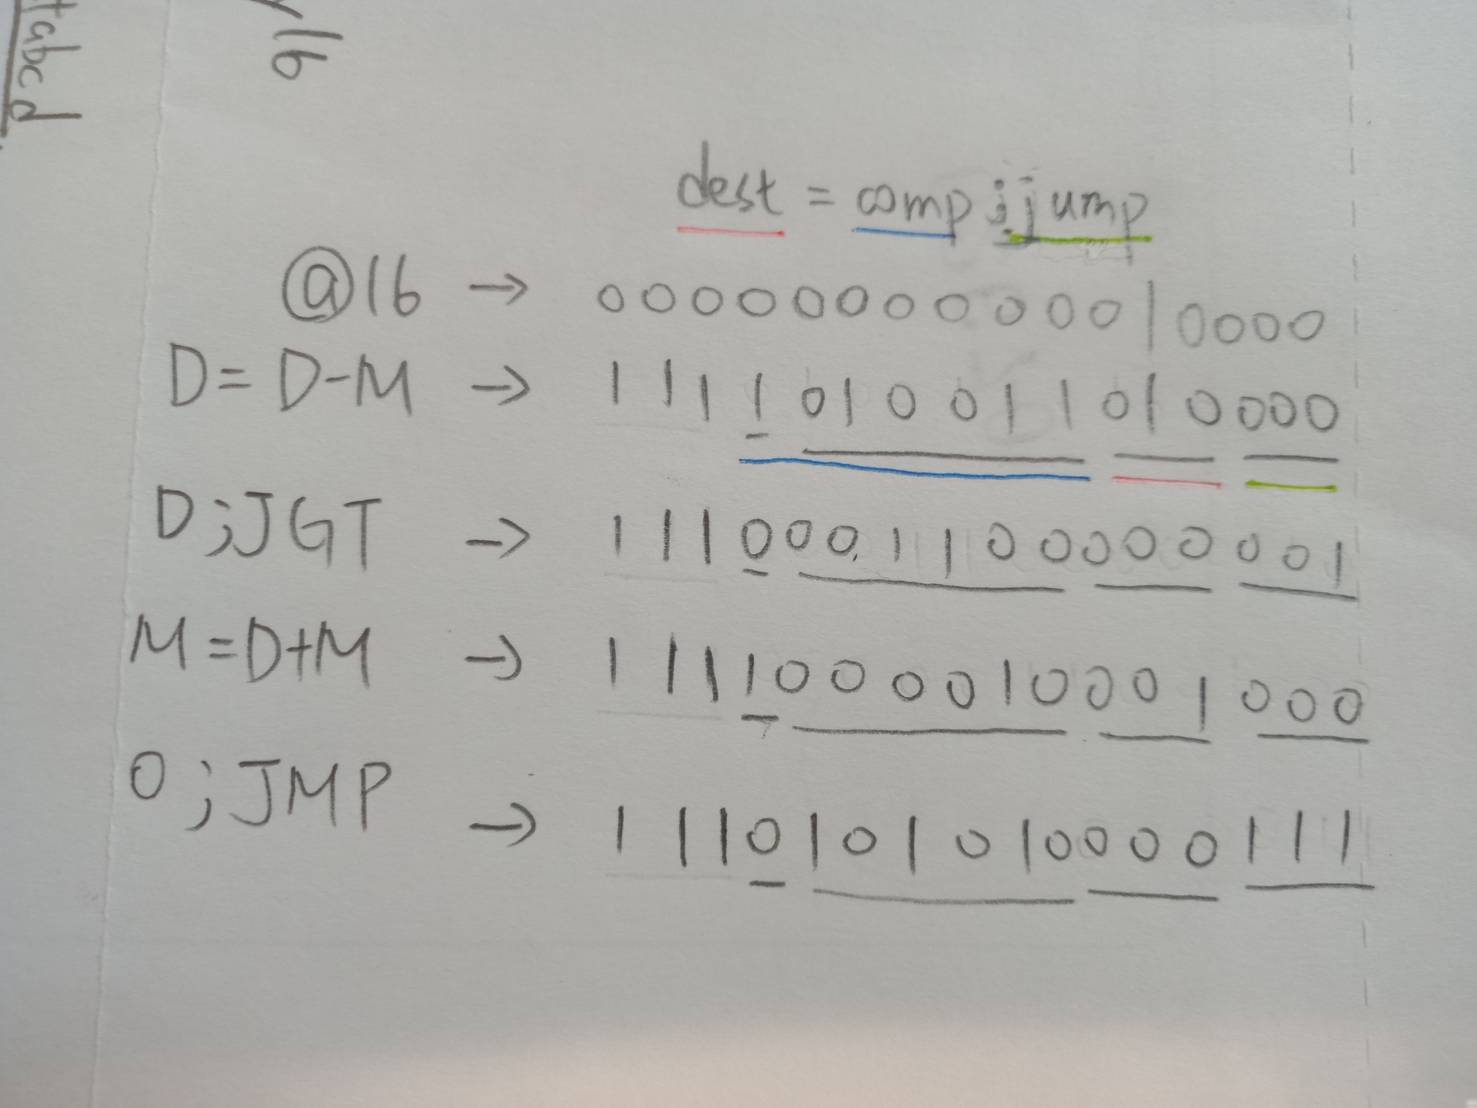 tabcd
y16
dest = comp;jump
@16 → 0000000000010000
D=D-M → 1111010011010000
D;JGT → 1110001100000001
M=D+M → 1111000010001000
0;JMP → 1110101010000111